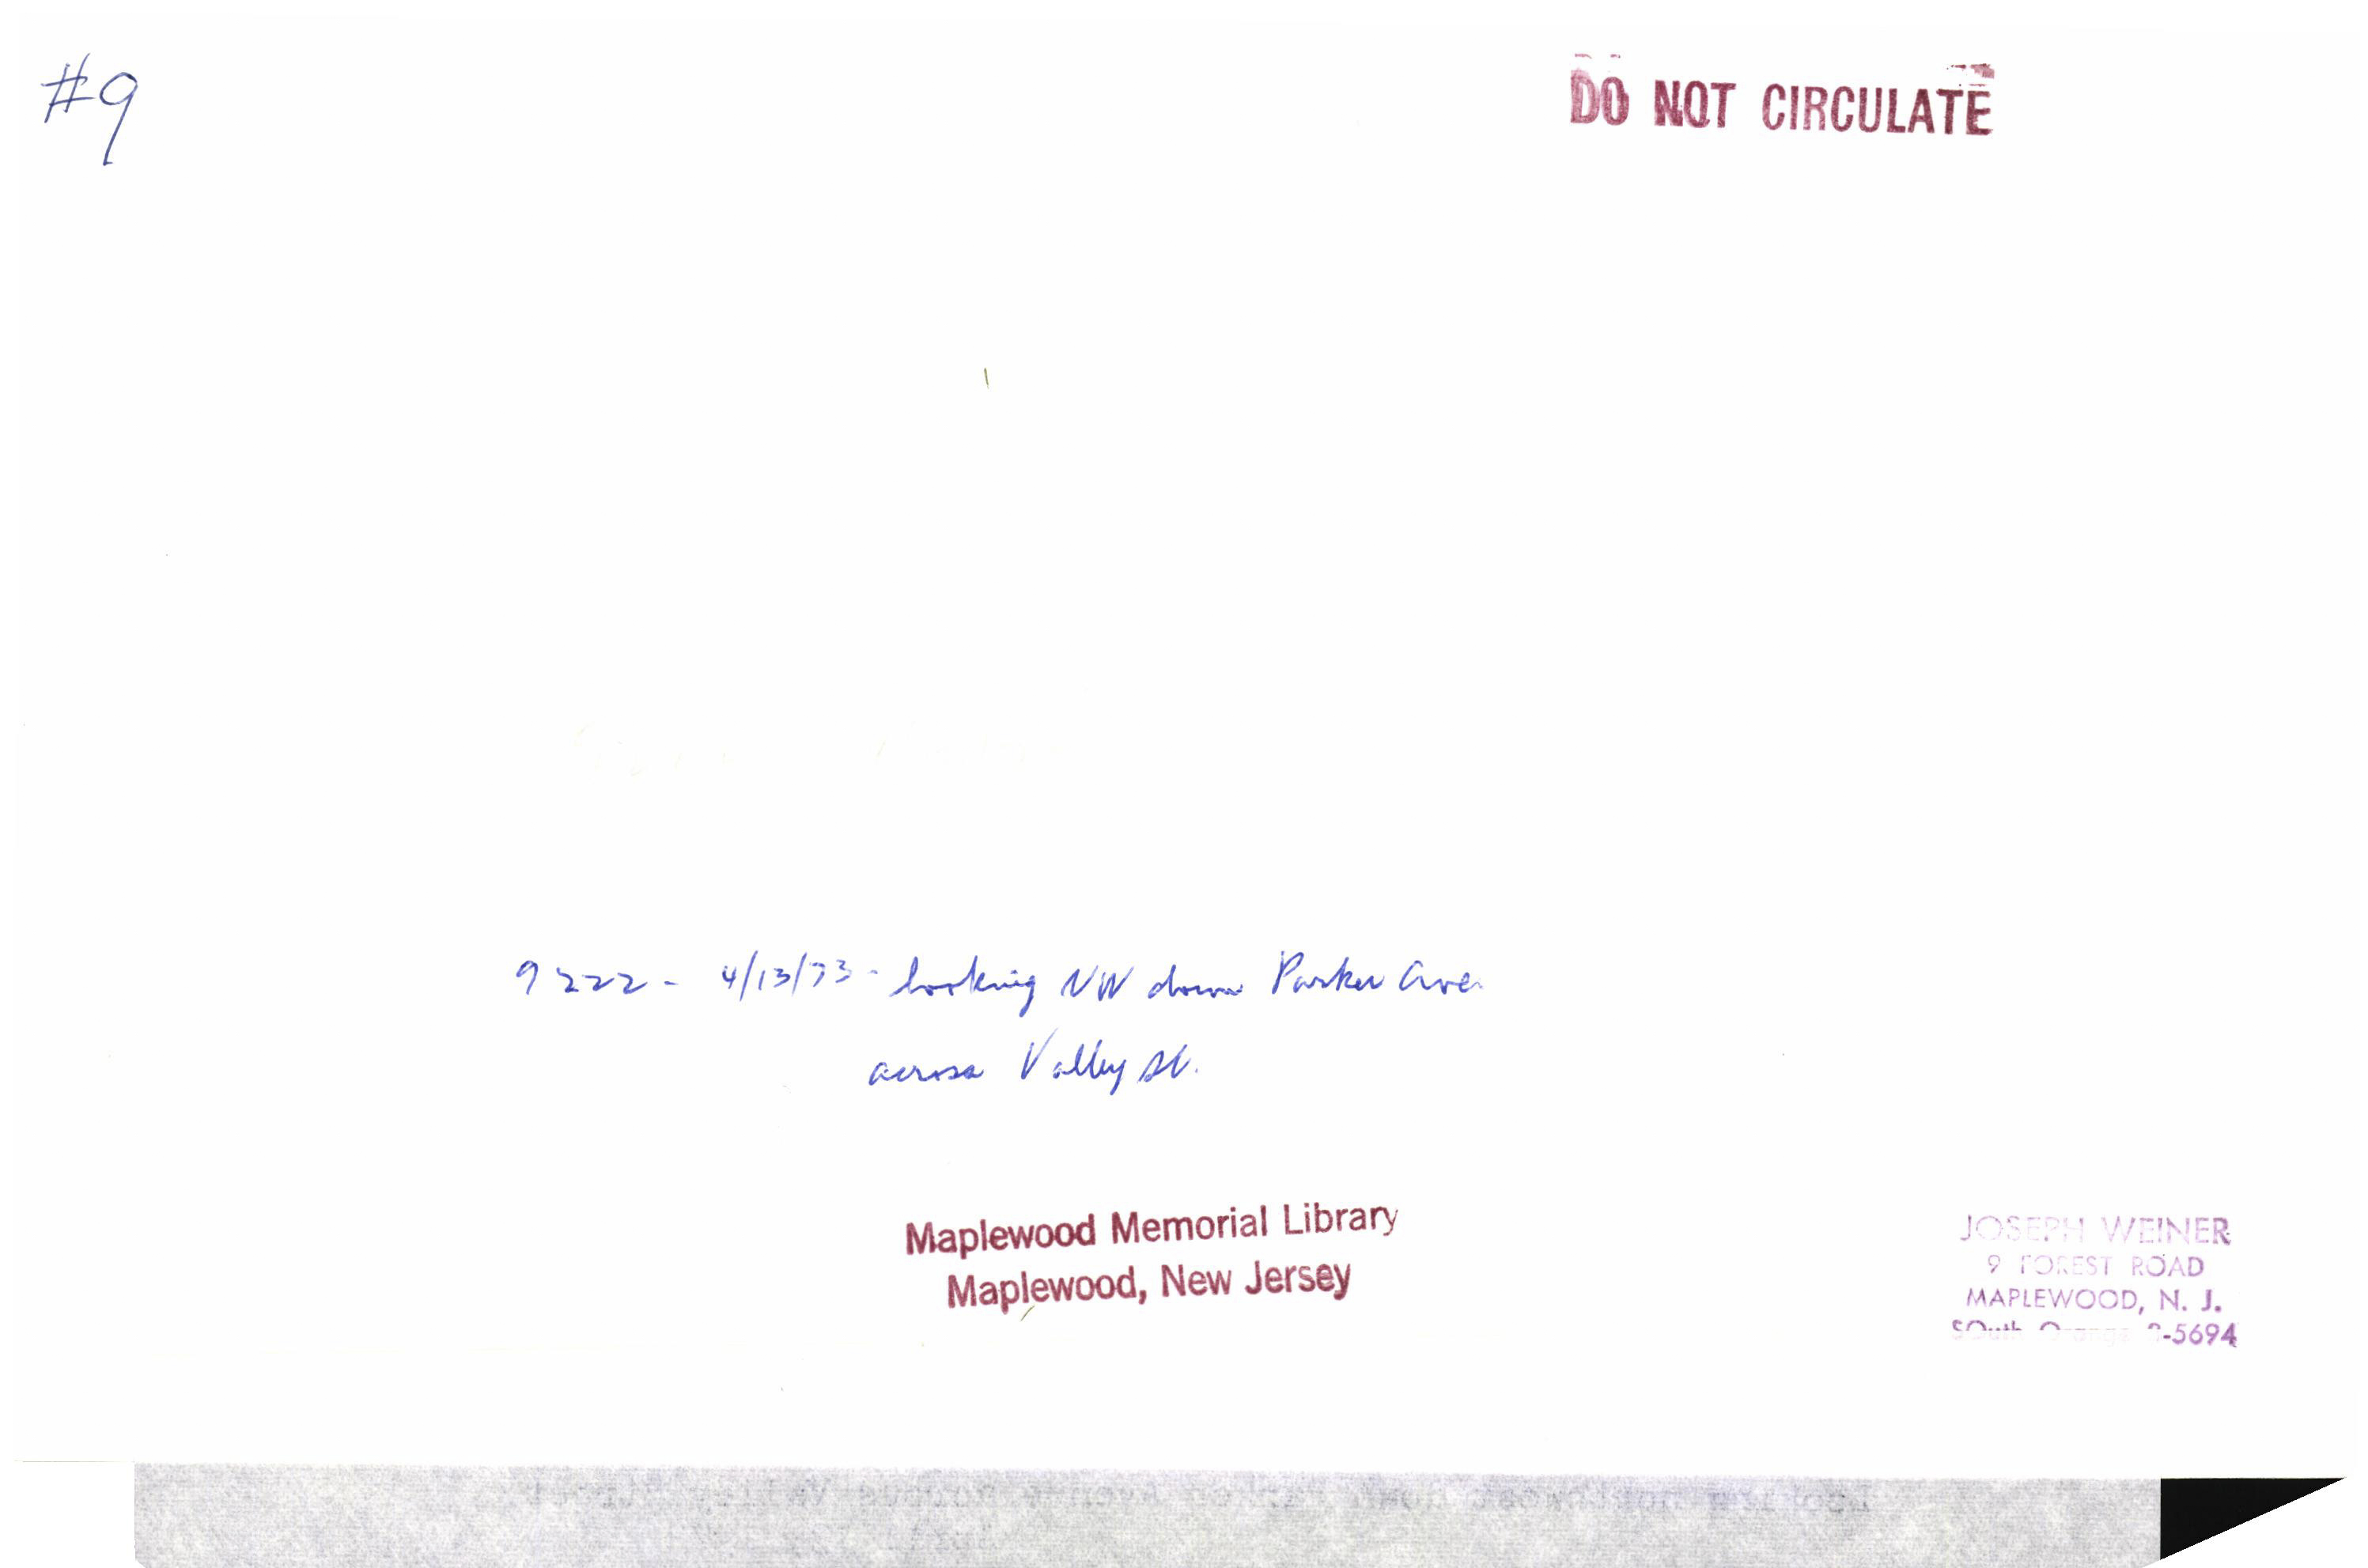 #9
DO NOT CIRCULATE
9222 - 4/13/73 - looking NW down Parker Ave.
across Valley St.
Maplewood Memorial Library
Maplewood, New Jersey
JOSEPH WEINER
9 FOREST ROAD
MAPLEWOOD, N. J.
SOuth Orange -5694